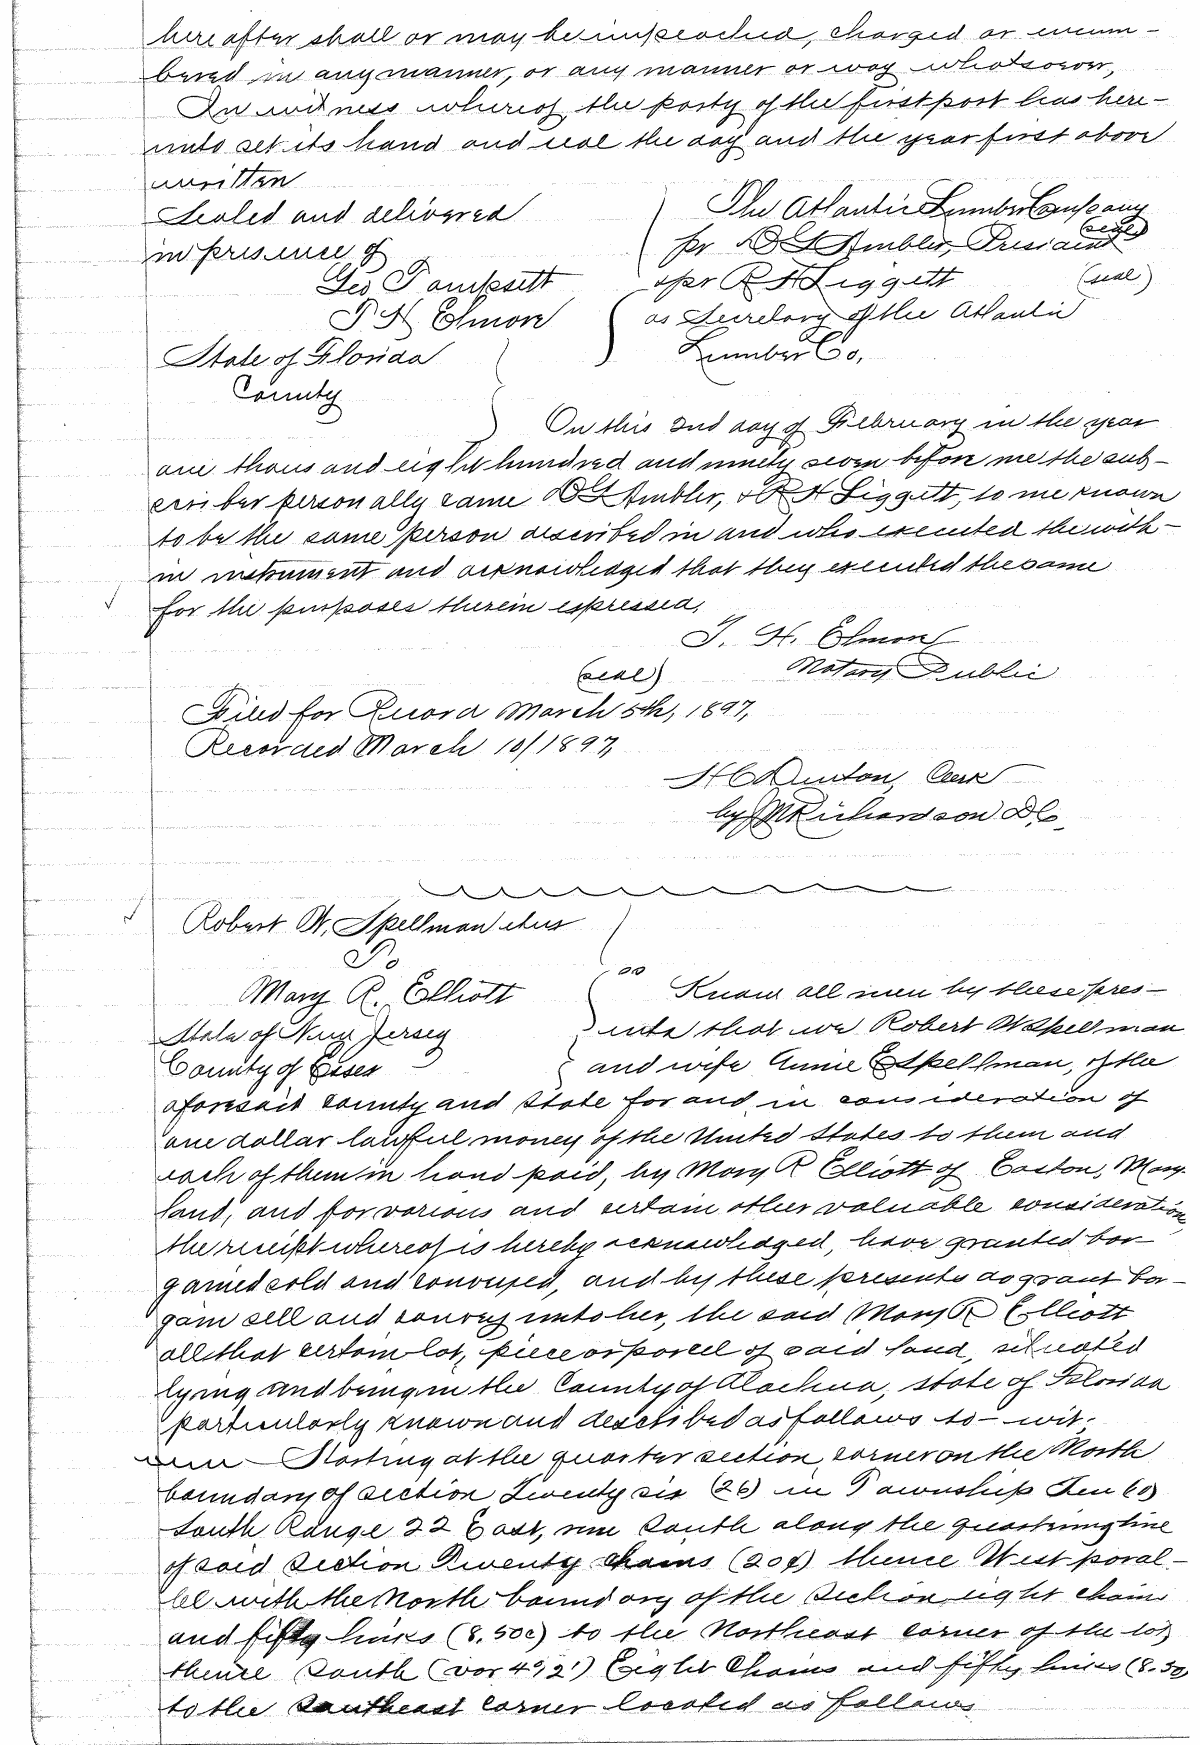 hereafter shall or may be impeached, charged or incum-
bered in any manner, or any manner or way whatsoever,
In witness whereof, the party of the first part has here-
unto set its hand and seal the day and the year first above
written
Sealed and delivered
in presence of
The Atlantic Lumber Company
per D G Ambler, President (seal)
Geo Tampsett
per R H Liggett (seal)
T H Elmore
as Secretary of the Atlantic
Lumber Co,
State of Florida
County
On this 2nd day of February in the year
one thousand eight hundred and ninety seven before me the sub-
scriber personally came D G Ambler, & R H Liggett, to me known
to be the same person described in and who executed the with-
in instrument and acknowledged that they executed the same
for the purposes therein expressed,
T. H. Elmore
(seal) Notary Public
Filed for Record March 5th, 1897,
Recorded March 10/1897,
H C Denton, Clerk
by Richardson D C,
Robert W. Spellman etux
To
Mary R. Elliott
State of New Jersey
County of Essex
Know all men by these pres-
ents that we Robert W Spellman
and wife Annie E Spellman, of the
aforesaid county and state for and in consideration of
one dollar lawful money of the United States to them and
each of them in hand paid, by Mary R Elliott of Easton, Mary-
land, and for various and certain other valuable consideration,
the receipt whereof is hereby acknowledged, have granted bar-
gained sold and conveyed, and by these presents do grant bar-
gain sell and convey unto her, the said Mary R Elliott
all that certain lot, piece or parcel of said land, situated
lying and being in the County of Alachua, state of Florida
particularly known and described as follows to-wit:
Starting at the quarter section corner on the North
boundary of section Twenty six (26) in Township Ten (10)
South Range 22 East, run South along the quartering line
of said section Twenty chains (20c) thence West paral-
lel with the North boundary of the section eight chains
and fifty links (8.50c) to the Northeast corner of the lot,
thence South (var 4°,2') Eight Chains and fifty links (8.50
to the Southeast corner located as follows